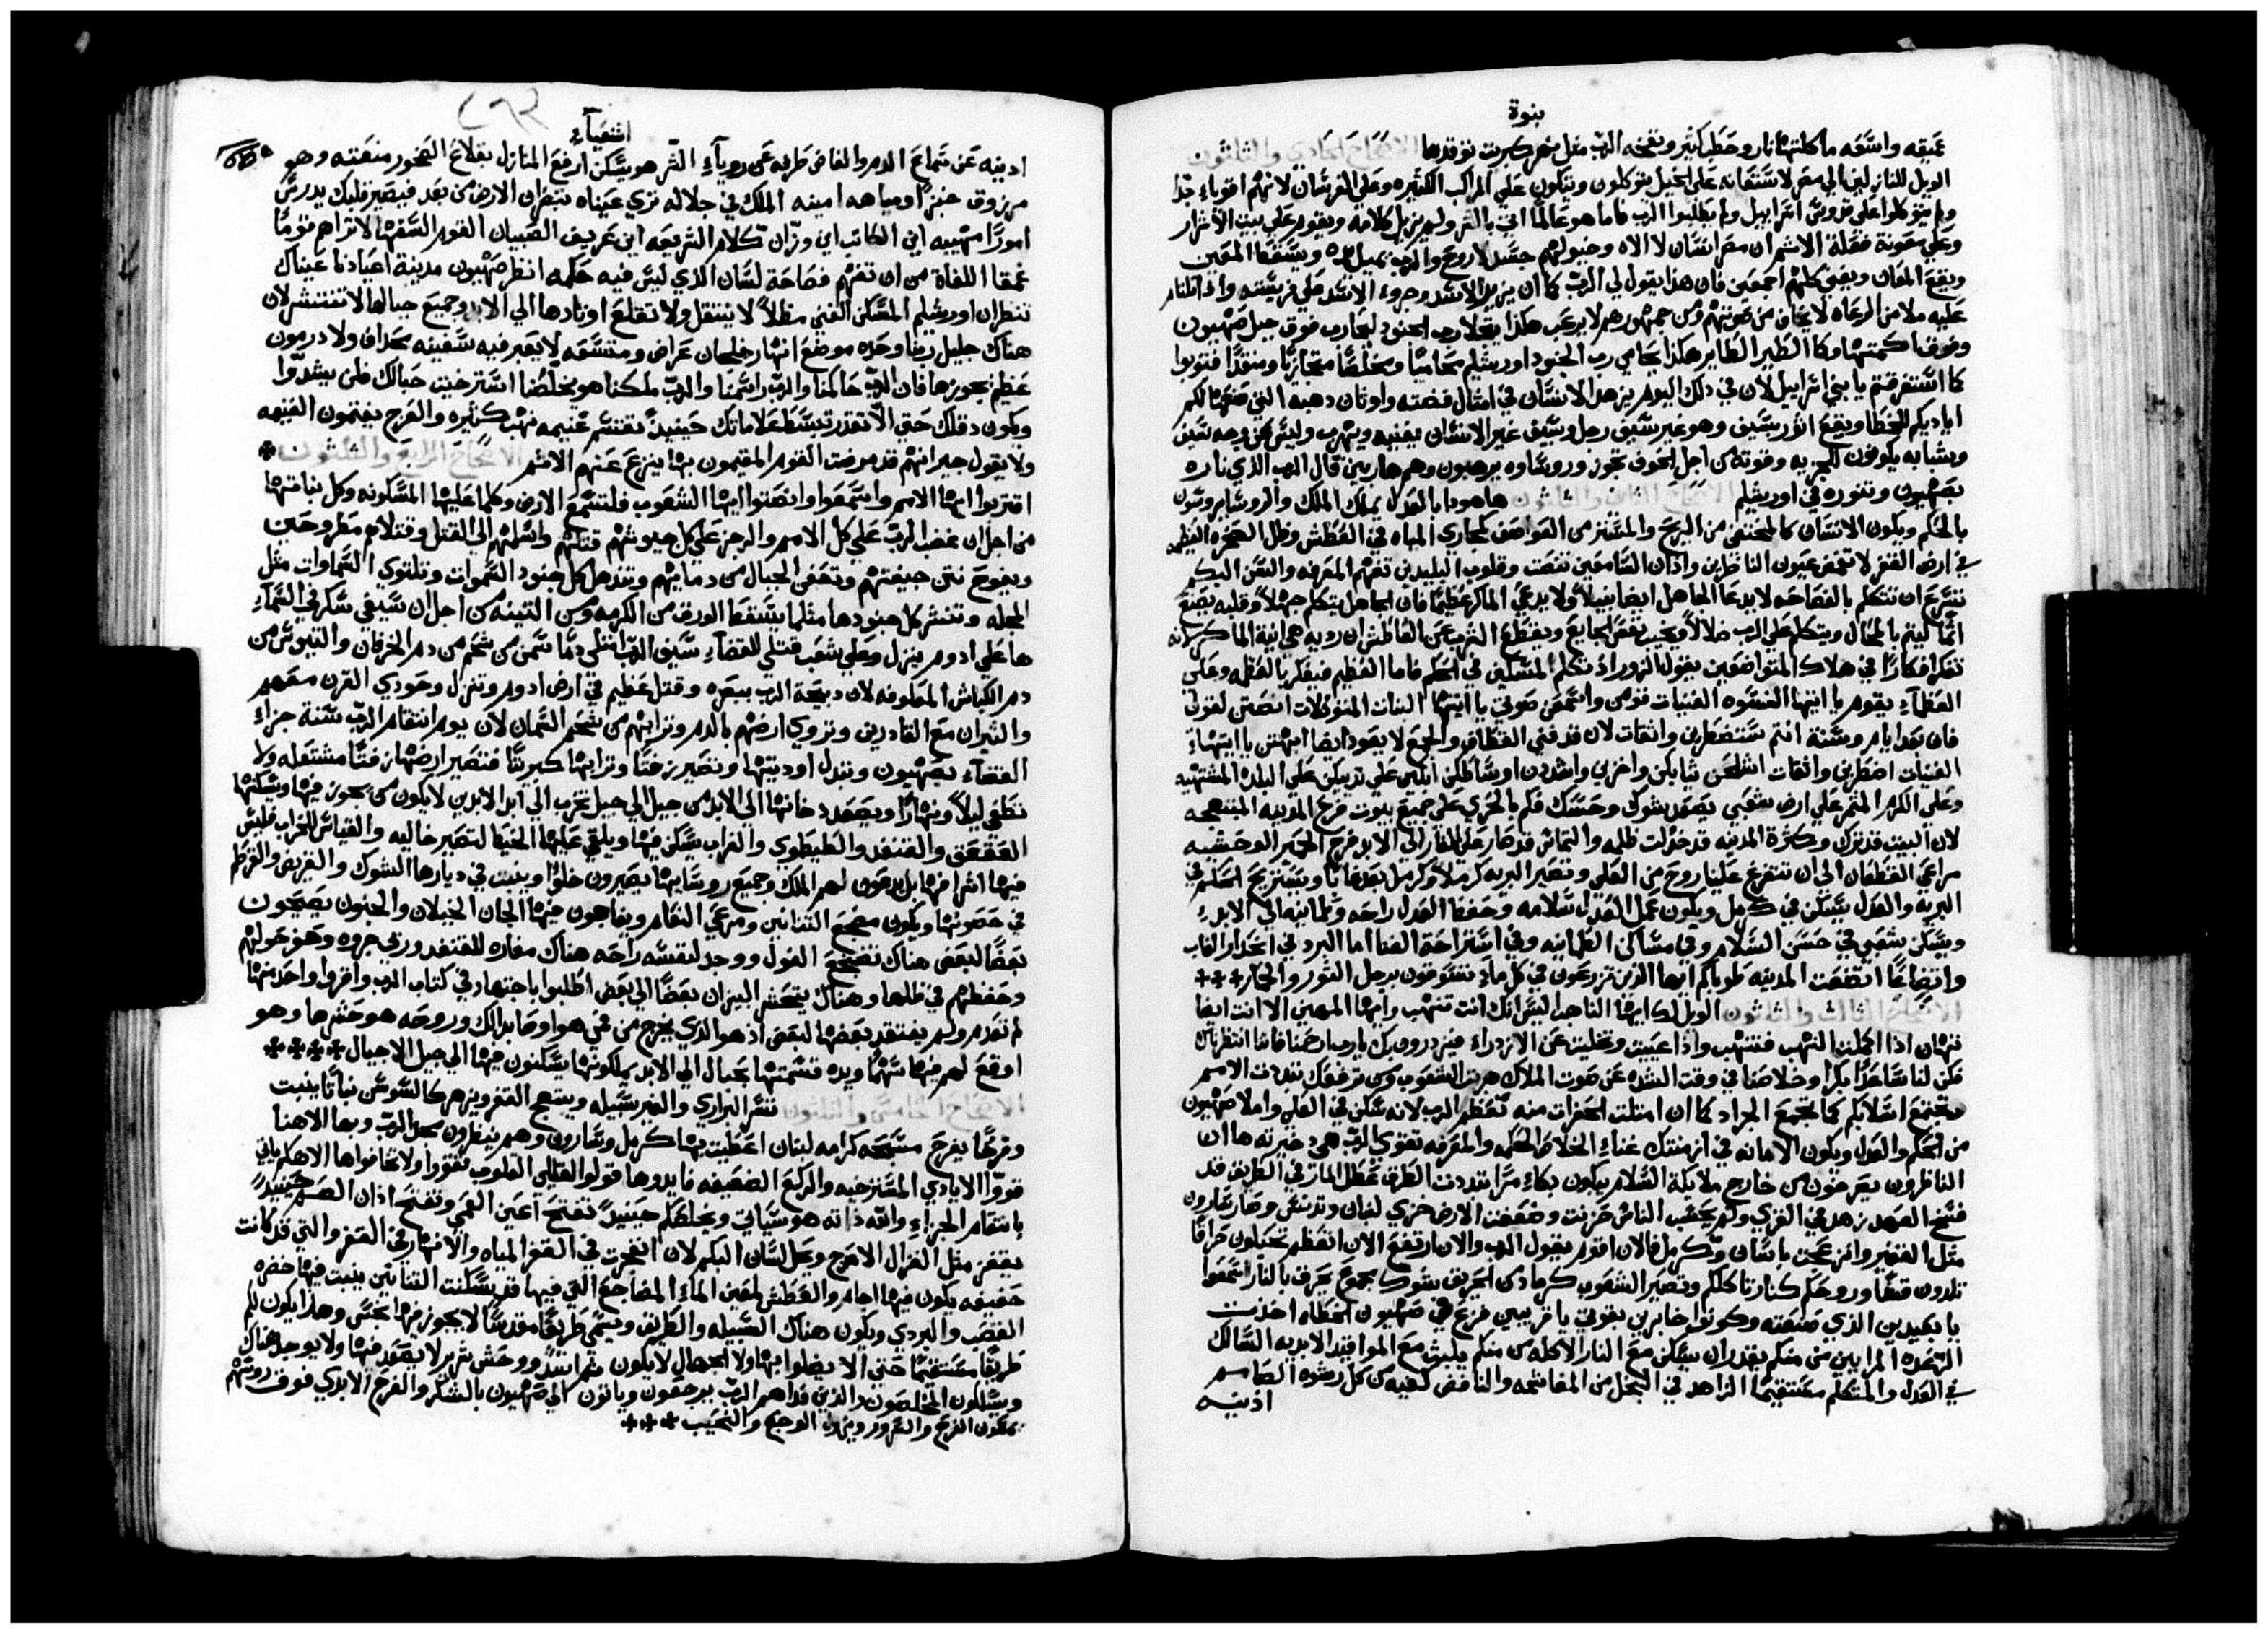 بنوة
عميقه واسعه ماكلتها نار وحطب كثير ونفخه الرب مثل نهر كبريت توقدها الاصحاح الحادي والثلثون
الويل للنازلين الي مصر لاستعانه على الخيل يتوكلون ويتكون علي المراكب الكثيره وعلي الفرسان لانهم اقوياء جدا
ولم يتوكلوا علي قدوس اسراييل ولم يطلبوا الرب فاما هو عالما اتي بالشر ولم يزيل كلامه ويقوم علي بيت الاشرار
وعلي معونة فعلة الاثم ان مصر انسان لا الاه وخيولهم جسد لا روح والرب يميل يده ويسقط المعين
ويقع المعان ويفني كلهم اجمعين فان هذا يقول لي الرب كما ان يزير الاسد وجروء الاسد علي فريسته واذا تلقاه
عليه ملا من الرعاه لا يخاف من صوتهم ومن جمهورهم لا يرعب هكذا ينحدر رب الجنود ليحارب فوق جبل صهيون
وفوق اكمتها وكما الطير الطاير هكذا يحامي رب الجنود اورشليم محاميا ومخلصا متجازيا ومنقذا فتوبوا
كما استغرقتم يا بني اسراييل لان في ذلك اليوم يزهد الانسان في امثال فضته واوثان ذهبه التي صنعتها لكم
اياديكم للخطا ويقع اثور بسيف وهو غير سيف رجل وسيف غير الانسان يفنيه ويهرب وليس من وجه سيف
وشبابه يكونون للجزيه وقوته من اجل الخوف تجوز وروساوه يرهبون وهم هاربين قال الرب الذي ناره
بصهيون وتنوره في اورشليم الاصحاح الثاني والثلثون هاهوذا بالعدل يملك الملك والروسا يروسون
بالحكم ويكون الانسان كالمختفي من الريح والمستتر من العواصف كمجاري المياه في العطش وظل الصخره العظيمه
في ارض القفر لا تغمض عيون الناظرين واذان السامعين تنصت وقلوب البليدين تفهم المعرفه والسن البكم
تسرع ان تتكلم بالفصاحه لا يدعا الجاهل ايضا نبيلا ولا يدعي الماكر عظيما فان الجاهل يتكلم جهلا وقلبه يصنع
اثما ليتم بالمحال ويتكلم علي الرب ضلالا ويخيب نفس الجايع ويقطع الشرب عن العاطش ان رديه هي انية الماكر لانه
تفكر افكارا في هلاك المتواضعين بقول الزور اذ تكلم المسكين في الحكم فاما العظيم فيفكر بالعظمه وعلي
العظماء يقوم يا ايتها النسوه الغنيات قومن واسمعن صوتي يا ايتها البنات المتوكلات انصتن لقولي
فان بعد ايام وسنة انتم ستضطربن واثقات لان قد فني القطاف والجمع لا يعود ايضا ابهتن يا ايتها
الغنيات اضطربن واثقات اشلحن ثيابكن واخزين واشددن اوساطكن ابكين علي ثديكن علي البلده المشتهيه
وعلي الكرم المثمر علي ارض شعبي يصعد شوك وحسك فكم بالحري علي جميع بيوت فرح المدينه المبتهجه
لان البيت قد ترك وكثرة المدينه قد خذلت ظلمه والتماس قد صار علي المغاير الي الابد فرح الحمير الوحشيه
مراعي القطعان الي ان تنفرغ علينا روح من العلي وتصير البريه كرملا وكرمل يعد غابا ويستريح الحكم في
البريه والعدل يسكن في كرمل ويكون عمل العدل سلامه وحفظ العدل راحه وطمانينه الي الابد
ويسكن شعبي في حسن السلام وفي مساكن الطمانينه وفي استراحة الغنا اما البرد في انحدار الغاب
واتضاعا اتضعت المدينه طوباكم ايها الذين تزرعون في كل ماء تنتدبون برجل الثور والحمار ***
الاصحاح الثالث والثلثون الويل لك ايها الناهب اليس انك انت تنهب وايها المهين الا انت ايضا
تهان اذا اكملت النهب فتنهب واذا عييت وتخليت عن الازدراء فيزدرون بك يا رب ارحمنا فاننا انتظرناك
فكن لنا ساعدا بكرا وخلاصنا في وقت الشده عن صوت الملاك هربت الشعوب ومن ترفعك تبددت الامم
وتجتمع اسلابكم كما تجمع الجراد كما ان امتلت الحفرات منه تعظم الرب لانه سكن في العلي واملا صهيون
من الحكم والعدل ويكون الامانه في ازمنتك غناء الخلاص الحكمه والمعرفه تقوي الرب هي ذخيرته ها ان
الناظرون يصرخون من خارج ملايكة السلام يبكون بكاء مرا تبددت الطرق عطل المار في الطريق قد
فسخ العهد زهد في القري ولم يحسب الناس حزنت وضعفت الارض خزي لبنان وتدنس وصار سارون
مثل القفر وانزعجت باسان وكرمل فالان اقوم يقول الرب والان ارتفع الان اتعظم تحبلون حرافا
تلدون قشا وروحكم كنار تاكلكم وتصير الشعوب كرمادي الحريق بشوك مجموع يحرق بالنار اسمعوا
يا بعيدين الذي صنعته وكونوا خابرين بقوتي يا قريبين فزع في صهيون الخطاه اخذت
الرعده المرايين من منكم يقدر ان يسكن مع النار الاكله من منكم يلبث مع المواقيد الابديه السالك
في العدل والمتكلم مستقيما الزاهد في البخل من المغاشمه والنافض كفيه من كل رشوه الصامم
اذنيه
اشعياء
اذنيه عن سماع الدم والغاض طرفه عن روياء الشر هو يسكن ارفع المنازل بقلاع الصخور منعته وهو
مرزوق خبزا ومياهه امينه الملك في جلاله تري عيناه تنظران الارض من بعد فيصير قلبك يدرس
امورا مهيبه اين الكاتب اين وزان كلام الشريعه اين عريف الصبيان القوم السفها لا تراهم قوما
عمقا اللغاة من ان تفهم فصاحة لسان الذي ليس فيه حكمه انظر صهيون مدينة اعيادنا عيناك
تنظران اورشليم المسكن الغني مظلا لا ينتقل ولا تقلع اوتادها الي الابد وجميع حبالها لا تفتسر لان
هناك جليل ربنا وحده موضع انهار خلجان عراض ومتسعه لا يعبر فيه سفينه بمجداف ولا درمون
عظيم يجوزها فان الرب حاكمنا والرب راسمنا والرب ملكنا هو يخلصنا استرخيت حبالك فلن يشدوا
ويكون دقلك حتي لا تقدر تبسط علاماتك حينيذ تقتسم غنيمه نهب كثيره والعرج يغنمون الغنيمه
ولا يقول جيرانهم قد مرضت القوم المقيمون بها ينزع عنهم الاثم الاصحاح الرابع والثلثون *
اقتربوا ايها الامم واسمعوا وانصتوا ايها الشعوب فلتسمع الارض وكلما عليها المسكونه وكل نباتها
من اجل ان غضب الرب علي كل الامم والرجز علي كل جيوشهم قتلهم واسلمهم الي القتل وقتلاهم مطروحين
ويفوح نتن جيفتهم وتعفي الجبال من دمايهم وتنحل كل جنود السموات وتلتوي السماوات مثل
المجله وتنتثر كل جنودها مثلما يسقط الورق من الكرمه ومن التينه من اجل ان سيفي سكر في السماء
ها علي ادوم ينزل وعلي شعب قتلي للقضاء سيف الرب امتلي دما سمن من شحم من دم الخرفان والتيوس من
دم الكباش المعلوفه لان ذبيحة الرب ببصره وقتل عظيم في ارض ادوم وتنزل وحودي القرن معهم
والثيران مع القادرين وتروي ارضهم بالدم وترابهم من شحم السمان لان يوم انتقام الرب سنة جزاء
القضاء بصهيون وتبدل اوديتها وتصير زفتا وترابها كبريتا فتصير ارضها زفتا مشتعله ولا
تطفي ليلا ونهارا ويصعد دخانها الي الابد من جيل الي جيل تخرب الي ابد الابدين لا يكون من يجوز فيها وتسكنها
العقعق والقنفد والطيطوي والغراب يسكن فيها ويلقي عليها الخيط لتصير خاليه والقياس للخراب فليس
فيها اشرافها بل يدعون لهم الملك وجميع روسايها يصيرون خلوا وينبت في ديارها الشوك والقريص والقرطم
في حصونها ويكون مضجع التنانين ومرعي النعام ويفاجون فيها الجان الخيلان والجنون يصيحون
بعضا لبعض هناك تضجع الغول ووجد لنفسه راحه هناك مغاره للقنفد وربي جروه وحفر حولهم
وحفظهم في ظلها وهناك يتحشر البيزان بعضا الي بعض اطلبوا باجتهاد في كتاب الرب واقروا واحد منها
لم تقدم ولم يفتقد بعضها لبعض اذ هو الذي يخرج من في هو اوصا بذالك وروحه هو حشرها وهو
اوقع لهم فيها سهما ويده قسمتها بحبال الي الابد يملكونها يسكنون فيها الي جيل الاجيال ****
الاصحاح الخامس والثلثون تسر البراري والغير سبيله ويبتهج القفر ويزهر كالسوسن نباتا ينبت
وفرحا يفرح مستبهجه كرامه لبنان اعطيت بها كرمل وسارون وهم ينظرون مجد الرب وبها الاهنا
قووا الايادي المسترخيه والركع الضعيفه فايدوها قولوا لقليلي القلوب تقووا ولا تخافوا ها الاهكم ياتي
بانتقام الجزاء والله ذاته هو سياتي ويخلصكم حينيذ تفتح اعين العمي وتفتح اذان الصم حينيذ
يقفز مثل الغزال الاعرج ويحل لسان البكم لان انفجرت في القفر المياه والانهار في القفر والتي قد كانت
خفيفه يكون فيها اجام والعطش لمعين الماء المضاجع التي فيها قد يسكنت التنانين ينبت فيها خضره
القصب والبردي ويكون هناك السبيله والطريق ويسمي طريقا مقدسا لا يجوز فيها نجس وهذا يكون لكم
طريقا مستقيما حتي الا يضلوا بها ولا الجهال لا يكون ثم اسد ووحش شرير لا يصعد فيها ولا يوجد هناك
ويسلكون المخلصون والذين فداهم الرب يرجعون وياتون الي صهيون بالشكر والفرح الابدي فوق روسهم
يجدون الفرح والسرور ويهرب الوجع والنحيب ***